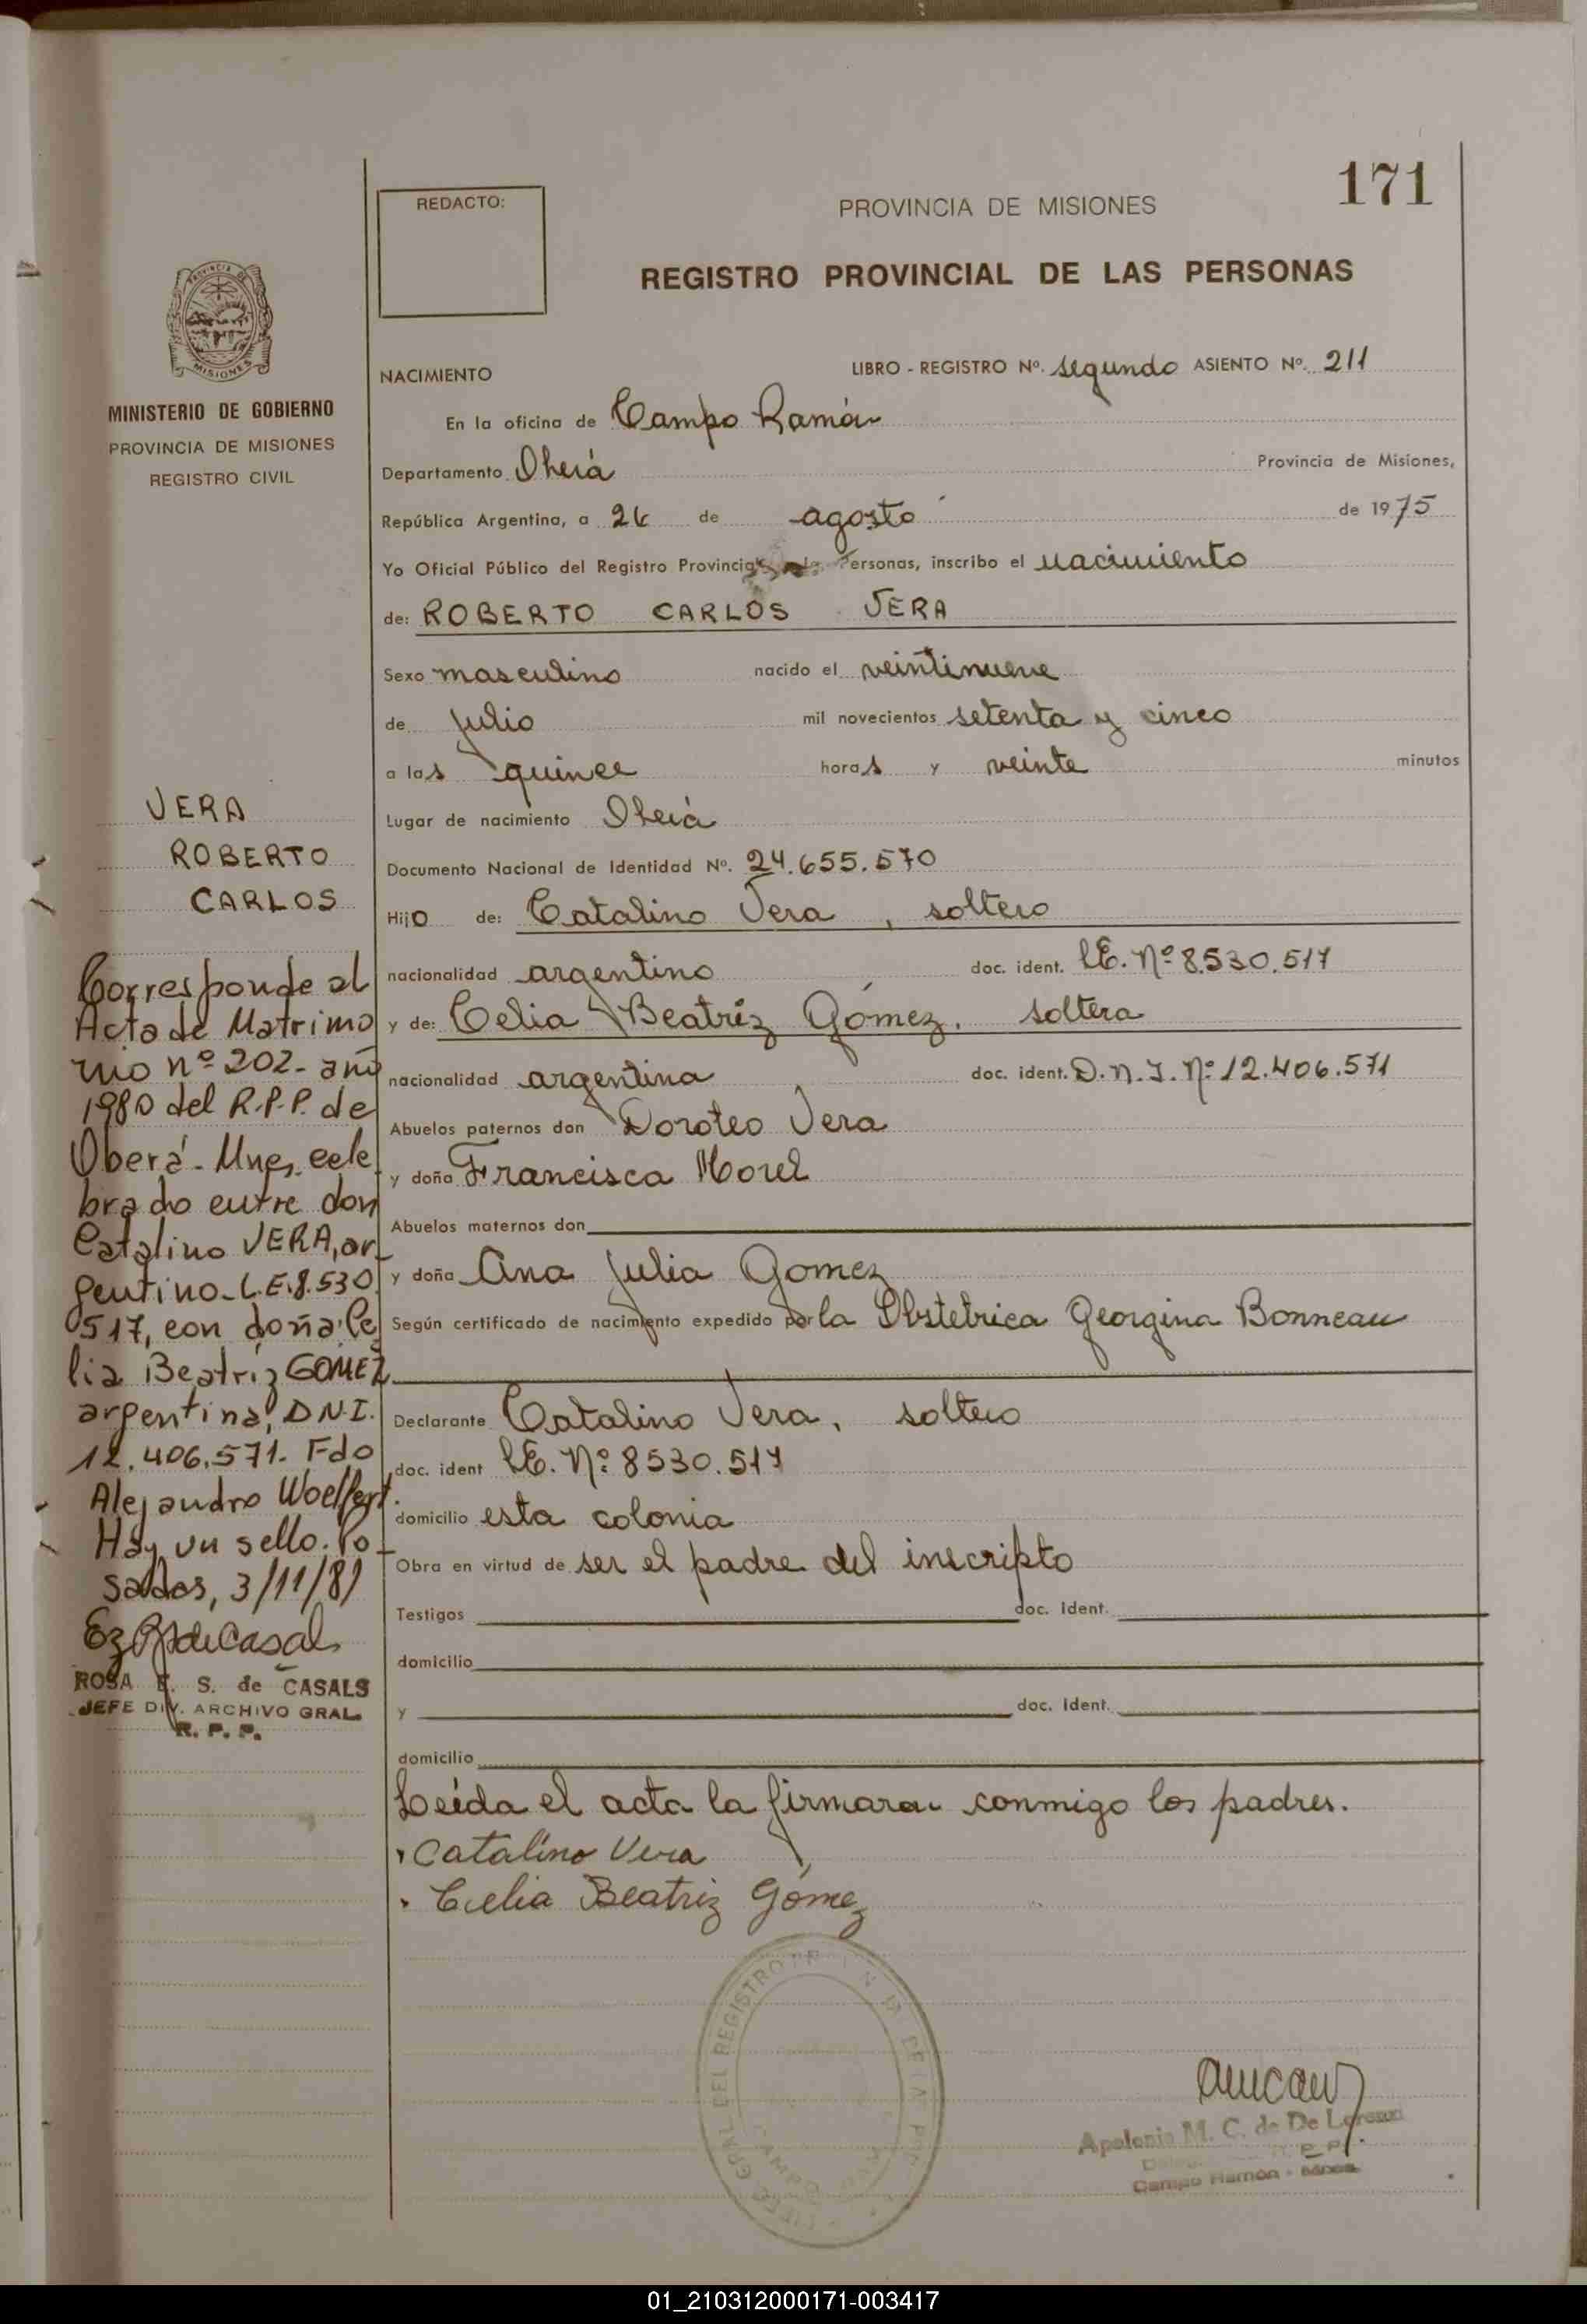 171
REDACTO:
PROVINCIA DE MISIONES
REGISTRO PROVINCIAL DE LAS PERSONAS
PROVINCIA DE
MISIONES
MINISTERIO DE GOBIERNO
PROVINCIA DE MISIONES
REGISTRO CIVIL
NACIMIENTO LIBRO - REGISTRO Nº. segundo ASIENTO Nº. 211
En la oficina de Campo Ramón
Departamento Oberá Provincia de Misiones,
República Argentina, a 26 de agosto de 1975
Yo Oficial Público del Registro Provincial Personas, inscribo el nacimiento
de: ROBERTO CARLOS VERA
Sexo masculino nacido el veintinueve
de julio mil novecientos setenta y cinco
a las quince horas y veinte minutos
Lugar de nacimiento Oberá
Documento Nacional de Identidad Nº. 24.655.570
Hijo de: Catalino Vera, soltero
nacionalidad argentino doc. ident. LE. Nº 8.530.517
y de: Celia Beatríz Gómez. soltera
nacionalidad argentina doc. ident. D.N.I. Nº 12.406.571
Abuelos paternos don Doroteo Vera
y doña Francisca Morel
Abuelos maternos don
y doña Ana Julia Gomez
Según certificado de nacimiento expedido por la Obstetrica Georgina Bonneau
Declarante Catalino Vera, soltero
doc. ident LE. Nº 8530.517
domicilio esta colonia
Obra en virtud de ser el padre del inscripto
Testigos doc. ident.
domicilio
y doc. ident.
domicilio
Leída el acta la firmaran conmigo los padres.
Catalino Vera
Celia Beatriz Gómez
VERA
ROBERTO
CARLOS
Corresponde al
Acta de Matrimo
nio nº 202- año
1980 del R.P.P. de
Oberá- Mnes, cele
brado entre don
Catalino VERA, ar-
gentino- L.E. 8.530.
517, con doña Ce
lia Beatríz GOMEZ
argentina, D.N.I.
12.406.571. Fdo
Alejandro Woelfert.
Hay un sello. Po-
sadas, 3/11/81
ROSA E. S. de CASALS
JEFE DIV. ARCHIVO GRAL.
R. P. P.
Apolonia M. C. de De Lorenzi
Campo Ramón - Mnes.
01_210312000171-003417